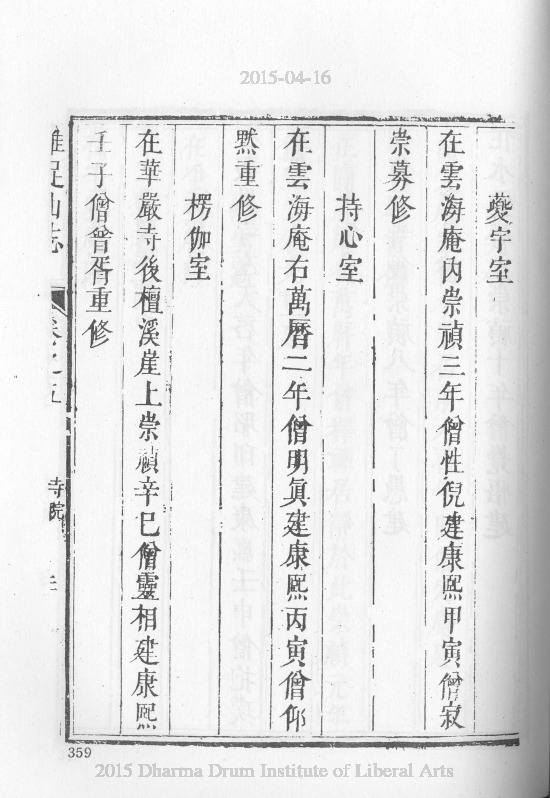 2015-04-16
夔宇室
在雲海庵內崇禎三年僧性倪建康熙甲寅僧寂
崇募修
持心室
在雲海庵右萬曆二年僧明眞建康熙丙寅僧仰
熙重修
楞伽室
在華嚴寺後檀溪崖上崇禎辛巳僧靈相建康熙
壬子僧曾胥重修
雞足山志
卷之五
寺院
359
2015 Dharma Drum Institute of Liberal Arts